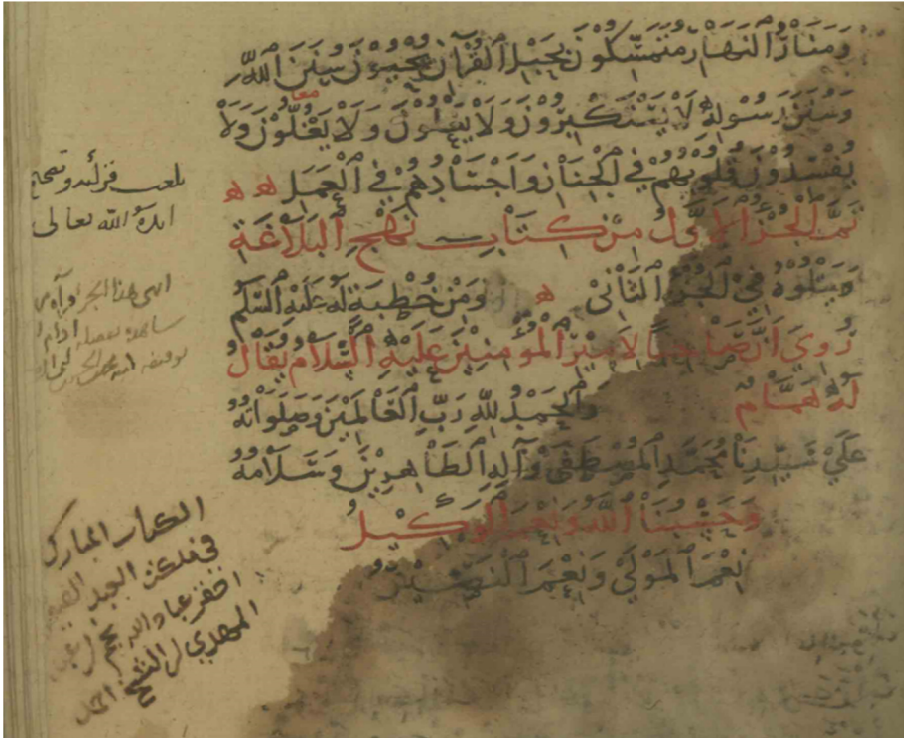 وَمَنَارُ النَّهَارِ مُتَمَسِّكُونَ بِحَبْلِ الْقُرْآنِ يُحْيُوْنَ سُنَنَ اللهِ
وَسُنَنَ رَسُوْلِهِ لَا يَسْتَكْبِرُوْنَ وَلَا يَعْلُوْنَ وَلَا يَغُلُّوْنَ وَلَا
معا
يُفْسِدُوْنَ قُلُوْبُهُمْ فِي الْجِنَانِ وَاَجْسَادُهُمْ فِي الْعَمَلِ ه ه
تَمَّ الْجُزْءُ الْاَوَّلُ مِنْ كِتَابِ نَهْجِ الْبَلَاغَةِ
وَيَتْلُوْهُ فِي الْجُزْءِ الثَّانِيْ ه وَمِنْ خُطْبَةٍ لَهُ عَلَيْهِ السَّلَمُ
رُوِيَ اَنَّ صَاحِبًا لِاَمِيْرِ الْمُؤْمِنِيْنَ عَلَيْهِ السَّلَامُ يُقَالُ
لَهُ هَمَّامٌ وَالْحَمْدُ لِلّٰهِ رَبِّ الْعَالَمِيْنَ وَصَلَوَاتُهُ
عَلَيْ سَيِّدِنَا مُحَمَّدِ الْمُصْطَفَيْ وَآلِهِ الطَّاهِرِيْنَ وَسَلَامُهُ
وَحَسْبُنَا اللهُ وَنِعْمَ الْوَكِيْلُ
نِعْمَ الْمَوْلَيْ وَنِعْمَ النَّصِيْرُ
بلغت قراءة وتصحيح
ايده الله تعالى
انهى هذا الجزء
ادام
توفيقه
الكتاب المبارك
في ملك العبد
احقر عباد الله
المهدي ل الشيخ احمد